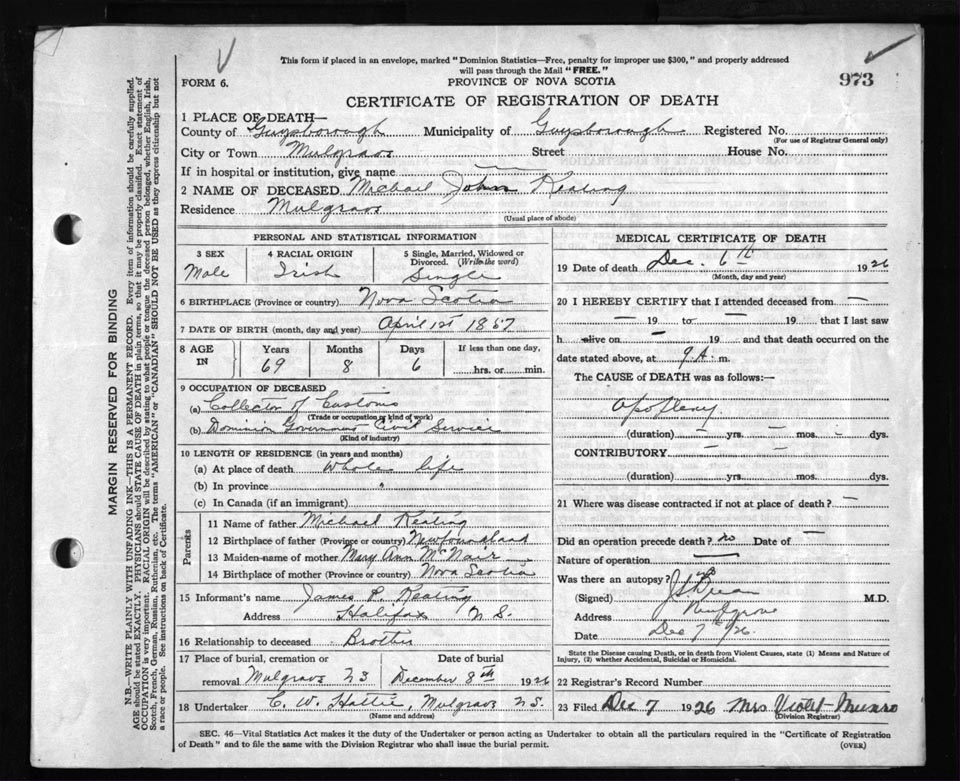 This form if placed in an envelope, marked "Dominion Statistics—Free, penalty for improper use $300," and properly addressed
will pass through the Mail "FREE."
FORM 6.
PROVINCE OF NOVA SCOTIA
973
CERTIFICATE OF REGISTRATION OF DEATH
1 PLACE OF DEATH—
County of Guysborough Municipality of Guysborough Registered No.
(For use of Registrar General only)
City or Town Mulgrave Street House No.
If in hospital or institution, give name —
2 NAME OF DECEASED Michael John Keating
Residence Mulgrave
(Usual place of abode)
PERSONAL AND STATISTICAL INFORMATION
3 SEX 4 RACIAL ORIGIN 5 Single, Married, Widowed or Divorced. (Write the word)
Male Irish Single
6 BIRTHPLACE (Province or country) Nova Scotia
7 DATE OF BIRTH (month, day and year) April 1st 1857
8 AGE IN Years Months Days If less than one day,
69 8 6 hrs. or min.
9 OCCUPATION OF DECEASED
(a) Collector of Customs
(Trade or occupation or kind of work)
(b) Dominion Civil Service
(Kind of industry)
10 LENGTH OF RESIDENCE (in years and months)
(a) At place of death whole life
(b) In province "
(c) In Canada (if an immigrant)
Parents
11 Name of father Michael Keating
12 Birthplace of father (Province or country) Newfoundland
13 Maiden-name of mother Mary Ann McNair
14 Birthplace of mother (Province or country) Nova Scotia
15 Informant's name James P. Keating
Address Halifax N S.
16 Relationship to deceased Brother
17 Place of burial, cremation or removal Date of burial
Mulgrave December 8th 1926
18 Undertaker C. W. Hattie, Mulgrave NS.
(Name and address)
MEDICAL CERTIFICATE OF DEATH
19 Date of death Dec. 6th 1926
(Month, day and year)
20 I HEREBY CERTIFY that I attended deceased from —
— 19 to — 19 that I last saw
h alive on — 19 and that death occurred on the
date stated above, at 9 A. m.
The CAUSE of DEATH was as follows:—
Apoplexy
(duration) — yrs. — mos. — dys.
CONTRIBUTORY —
(duration) yrs. mos. dys.
21 Where was disease contracted if not at place of death? —
Did an operation precede death? no Date of —
Nature of operation —
Was there an autopsy? no
(Signed) M.D.
Address Mulgrave
Date Dec 7th/26.
State the Disease causing Death, or in death from Violent Causes, state (1) Means and Nature of
Injury, (2) whether Accidental, Suicidal or Homicidal.
22 Registrar's Record Number
23 Filed Dec 7 1926 Mrs Violet Munro
(Division Registrar)
SEC. 46—Vital Statistics Act makes it the duty of the Undertaker or person acting as Undertaker to obtain all the particulars required in the "Certificate of Registration
of Death" and to file the same with the Division Registrar who shall issue the burial permit.
(OVER)
MARGIN RESERVED FOR BINDING
N.B.—WRITE PLAINLY WITH UNFADING INK—THIS IS A PERMANENT RECORD. Every item of information should be carefully supplied.
AGE should be stated EXACTLY. PHYSICIANS should STATE CAUSE OF DEATH in plain terms, so that it may be properly classified. Exact statement of
OCCUPATION is very important. RACIAL ORIGIN will be described by stating to what people or tongue the deceased person belonged, whether English, Irish,
Scotch, French, German, Russian, Ruthenian, etc. The terms "AMERICAN" or "CANADIAN" SHOULD NOT BE USED as they express citizenship but not
a race or people. See instructions on back of Certificate.